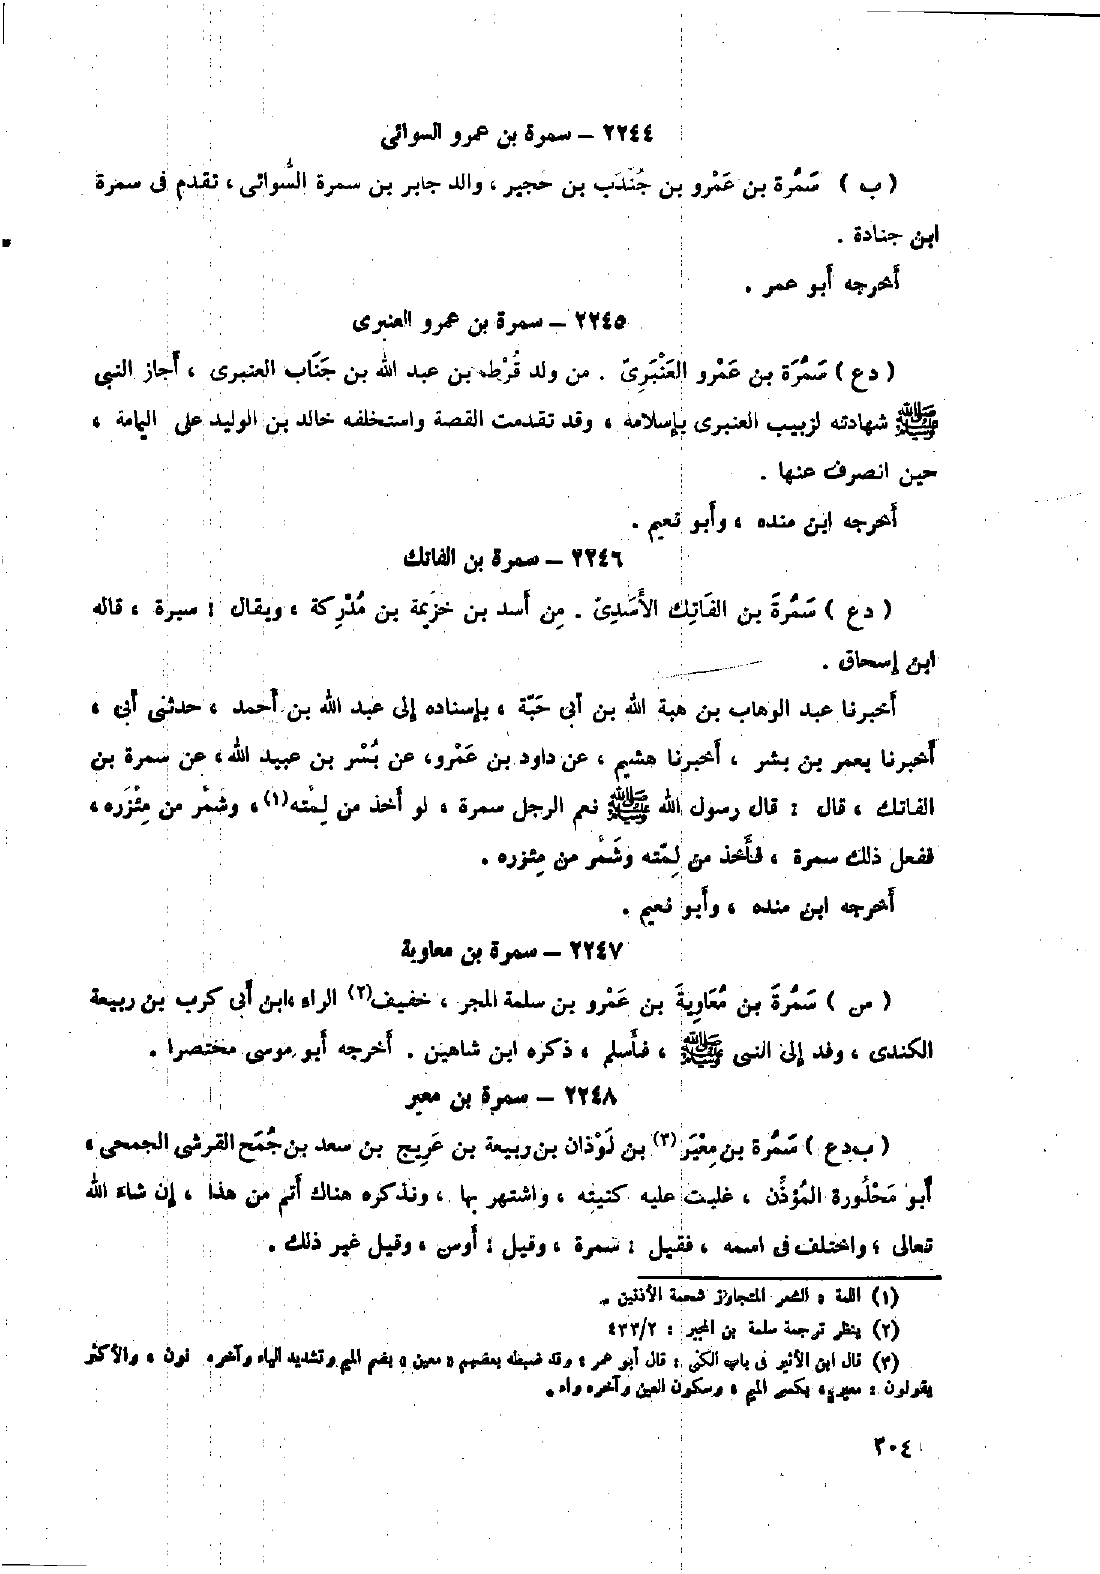 ٢٢٤٤ – سمرة بن عمرو السوائى
( ب ) سَمُرة بن عَمْرو بن جُنْدَب بن حجير ، والد جابر بن سمرة السُّوائى ، تقدم فى سمرة
ابن جنادة .
أخرجه أبو عمر .
٢٢٤٥ – سمرة بن عمرو العنبرى
( دع ) سَمُرَة بن عَمْرو العَنْبَرِىّ . من ولد قُرْطه بن عبد الله بن جَنَاب العنبرى ، أجاز النبى
ﷺ شهادته لزبيب العنبرى بإسلامه ، وقد تقدمت القصة واستخلفه خالد بن الوليد على اليمامة ،
حين انصرف عنها .
أخرجه ابن منده ، وأبو نعيم .
٢٢٤٦ – سمرة بن الفاتك
( دع ) سَمُرةَ بن الفَاتِك الأَسَدِىّ . مِن أسد بن خزَيمة بن مُدْرِكة ، ويقال : سبرة ، قاله
ابن إسحاق .
أخبرنا عبد الوهاب بن هبة الله بن أبى حَبّة ، بإسناده إلى عبد الله بن أحمد ، حدثنى أبى ،
أخبرنا يعمر بن بشر ، أخبرنا هشيم ، عن داود بن عَمْرو، عن بُسْر بن عبيد الله، عن سمرة بن
الفاتك ، قال : قال رسول الله ﷺ نعم الرجل سمرة ، لو أخذ من لِمّته(١) ، وشَمَّر من مِئْزَره ،
ففعل ذلك سمرة ، فأخذ من لِمّته وشَمَّر من مِئزره .
أخرجه ابن منده ، وأبو نعيم .
٢٢٤٧ – سمرة بن معاوية
( س ) سَمُرةَ بن مُعَاوِيةَ بن عَمْرو بن سلمة المجر ، خفيف(٢) الراء ،ابن أبى كرب بن ربيعة
الكندى ، وفد إلى النبى ﷺ ، فأسلم ، ذكره ابن شاهين . أخرجه أبو موسى مختصرا .
٢٢٤٨ – سمرة بن معير
( ب‌دع ) سَمُرة بن مِعْيَر(٣) بن لَوْذان بن ربيعة بن عَرِيج بن سعد بن جُمَح القرشى الجمحى ،
أبو مَحْذُورة المُؤذِّن ، غلبت عليه كنيته ، واشتهر بها ، ونذكره هناك أتم من هذا ، إن شاء الله
تعالى ؛ واختلف فى اسمه ، فقيل : سمرة ، وقيل : أوس ، وقيل غير ذلك .
(١) اللمة ، الشعر المتجاوز شحمة الأذنين .
(٢) ينظر ترجمة سلمة بن المجبر : ٤٣٣/٢
(٣) قال ابن الأثير فى باب الكنى : قال أبو عمر : وقد ضبطه بعضهم « معين » بضم الميم وتشديد الياء وآخره نون ، والأكثر
يقولون : معير، بكسر الميم ، وسكون العين وآخره راء .
٣٠٤